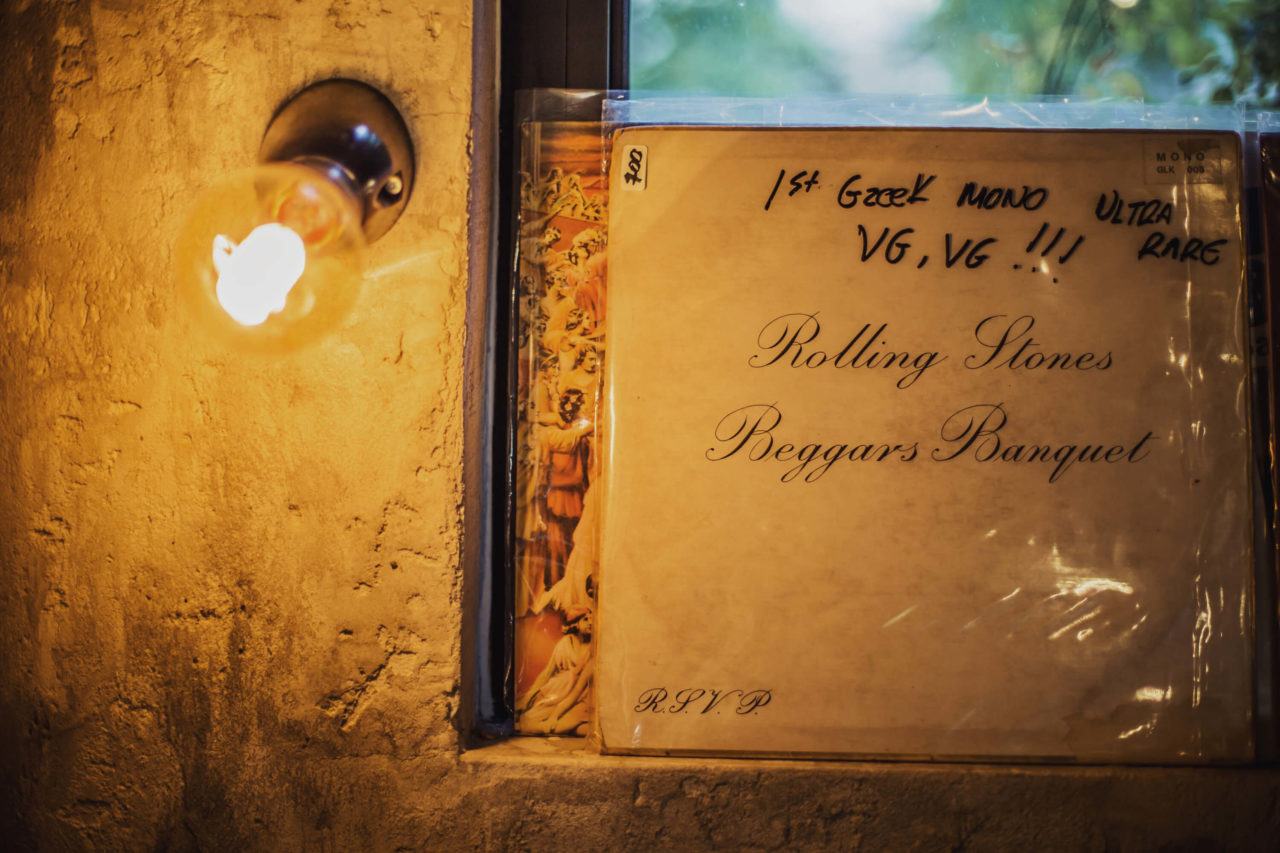 700
MONO
GLK 009
1st Greek MONO ULTRA
VG, VG !!! RARE
Rolling Stones
Beggars Banquet
R.S.V.P.